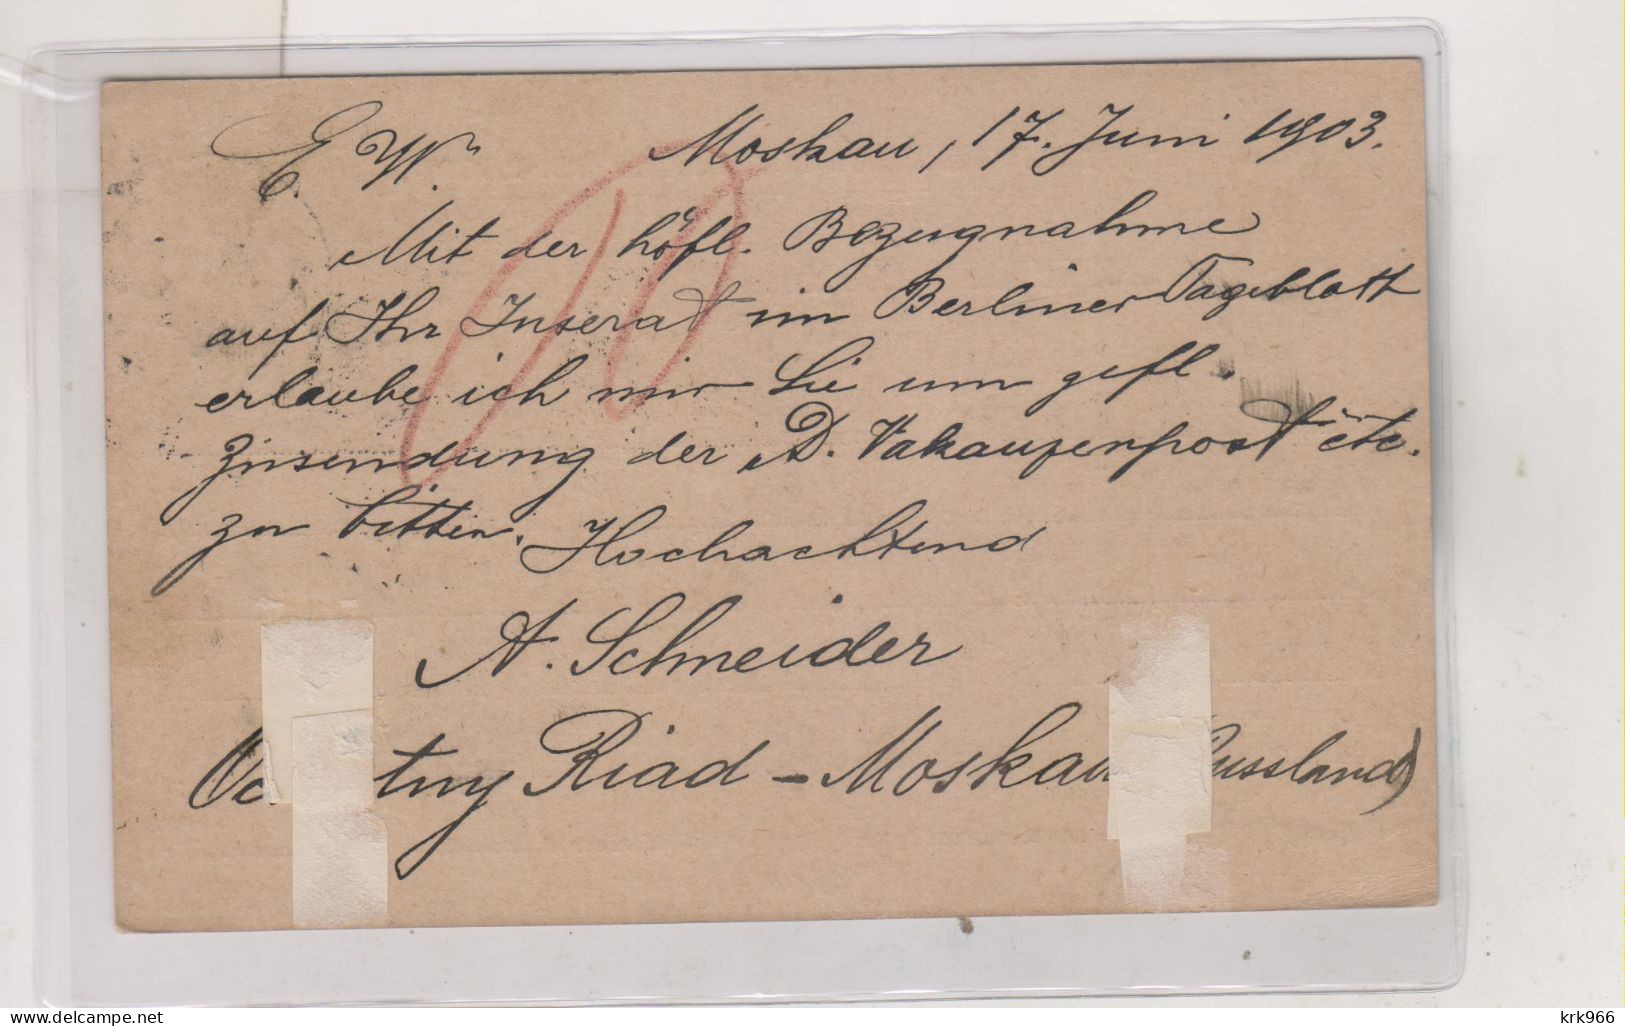 E. W.
Moskau, 17. Juni 1903.
Mit der höfl. Bezugnahme
auf Ihr Inserat im Berliner Tageblatt
erlaube ich mir Sie um gefl.
Zusendung der D. Vakanzenpost etc.
zu bitten. Hochachtend
A. Schneider
tny Riad - Moskau Russland)
delcampe.net
krk966